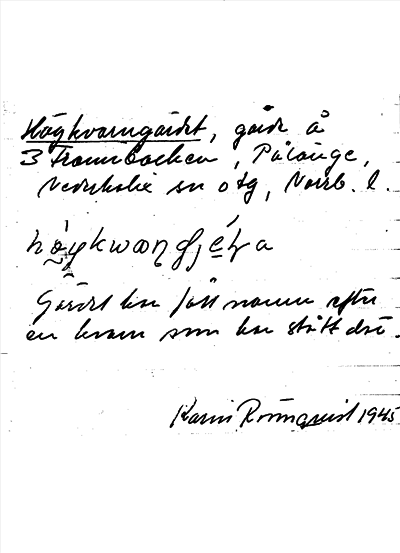 Högkvarngärdet, gärde å
3 Frambacken, Pålänge,
Nederkalix sn o tg, Norrb. l.
Gärdet har fått namn efter
en kvarn som har stått där.
Karin Rönnquist 1945